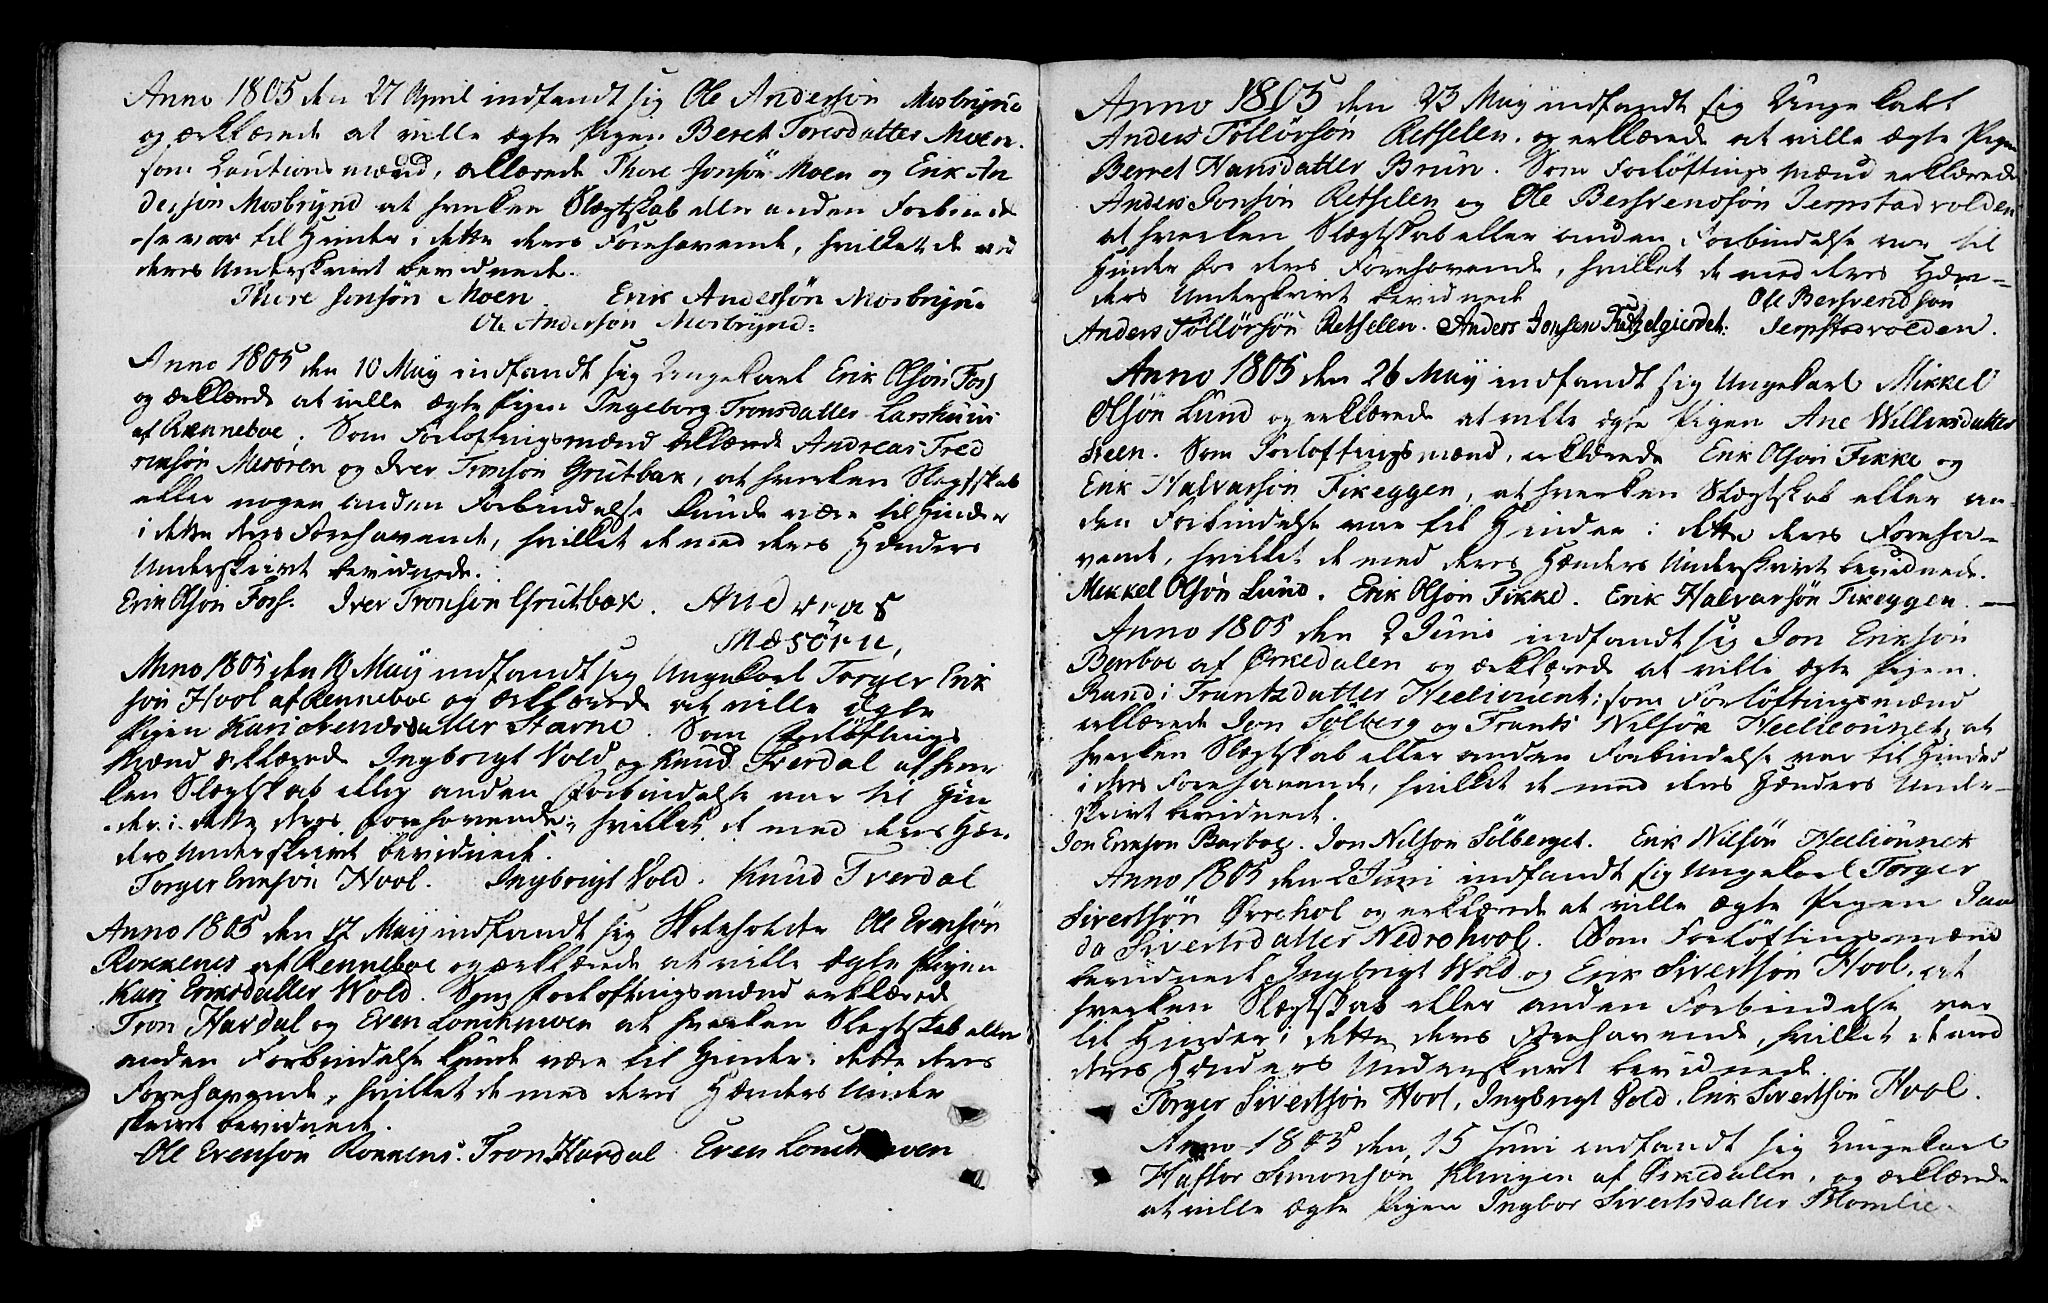 Anno 1805 den 27 April indfandt sig Ole Andersøn Mosbrynd
og erklærede at ville ægte Pigen Beret Toresdatter Moen.
som Cautions mænd, erklærede Thore Jonsøn Moen og Erik An
dersøn Mosbrynd at hverken Slægtskab eller anden Forbindel
-se var til Hinder i dette deres Forehavende, hvilket de ved
deres Underskrivt bevidnede.
Thore Jonsøn Moen. Erik Andersøn Mosbrynd
Ole Andersøn Mosbrynd:
Anno 1805 den 10 May indfandt sig Ungekarl Erik Olsøn Foss
og erklærede at ville ægte Pigen Ingeborg Tronsdatter Larshuus
af Renneboe. Som Forloftningsmænd erklærede Andreas Fred
richsøn Mesøren og Iver Tronsøn Grutbak, at hverken Slegtskab
eller nogen anden Forbindelse kunde være til Hinder
i dette deres Forehavende, hvilket de med deres Hænders
Underskrivt bevidnede.
Erik Olsøn Foss. Iver Tronson Grutbak. Andreas
Mæsørn,
Anno 1805 den May indfandt sig Ungekarl Torger Erik
søn Hool af Renneboe og erklærede at ville ægte
Pigen Kari datter Stavne. Som Forløftnings
Mænd erklærede Ingbrigt Vold og Knud Tverdal at hver
ken Slægtskab eller anden Forbindelse var til Hin
der i dette deres Forehavende, hvilket de med deres Hæn
ders Underskrivt bevidnede.
Torger Eriksøn Hool. Ingbrigt Vold. Knud Tverdal
Anno 1805 den 17 May indfandt sig Skoleholder Ole Evensøn
Rokkenes af Renneboe og erklærede at ville ægte Pigen
Kari Ericsdatter Wold. Som Forloftningsmænd erklærede
Tron Havdal og Even Lonchmoen at hverken Slegtskab eller
anden Forbindelse kunde være til Hinder i dette deres
Forehavende, hvilket de med deres Hænders Under
skrivt bevidnede.
Ole Evensøn Ronnens. Tron Havdal Even Lonchmoen
Anno 1805 den 23 May indfandt sig Ungekarl
Anders Tollørsøn Retselen. og erklærede at ville ægte Pigen
Berret Hansdatter Brun. Som Forløftnings mænd erklærede
Anders Jonsøn Retselen og Ole Bersvendsøn Jerpstadvolden
at hverken Slægtskab eller anden Forbindelse var til
Hinder for deres Forehavende, hvilket de med deres Hæn-
ders Underskrivt bevidnede Ole Bersvendsøn
Anders Tollørsøn Retselen. Anders Jonsen Jerpstadvolden.
Anno 1805 den 26 May indfandt sig Ungekarl Mikkel
Olsøn Lund og erklærede at ville ægte Pigen Ane Willumsdatter
Steen. Som Forloftningsmænd, erklærede Erik Olsøn Fikke og
Erik Halvarsøn Fikeggen, at hverken Slægtskab eller an-
den Forbindelse var til Hinder i dette deres Foreha-
vende, hvilket de med deres Hænders Underskrivt bevidnede.
Mikkel Olsøn Lund. Erik Olsøn Fikke. Erik Halvarsøn Fikeggen. —
Anno 1805 den 2 Juni indfandt sig Jon Eriksøn
Barboe af Ørkedalen og erklærede at ville ægte Pigen
Randi Frantzdatter som Forløftningsmænd
erklærede Jon Sølberg og Frants Nilsøn at
hverken Slægtskab eller anden Forbindelse var til Hinder
i deres Forehavende, hvilket de med deres Hænders Under-
skrivt bevidnede.
Jon Erikson Barboe. Jon Nilson Sølberget. Erik Nilsøn
Anno 1805 den 2 Juni indfandt sig Ungekarl Torger
Sivertsøn Øvrehol og erklærede at ville ægte Pigen
Sivertsdatter Nedrehool. Som Forløftningsmænd
bevidnede Ingbrigt Wold og Erik Sivertsøn Hool. at
hverken Slægtskab eller anden Forbindelse var
til Hinder i dette deres Forehavende, hvilket de med
deres Hænders Underskrivt bevidnede.
Torger Sivertsøn Hool, Ingbrigt Vold. Erik Sivertsøn Hool.
Anno 1805 den 15 Juni indfandt sig Ungekarl
Haftor Simonsøn Klingen af Ørkedalen, og erklærede
at ville ægte Pigen Ingbor Sivertsdatter Blomlie.